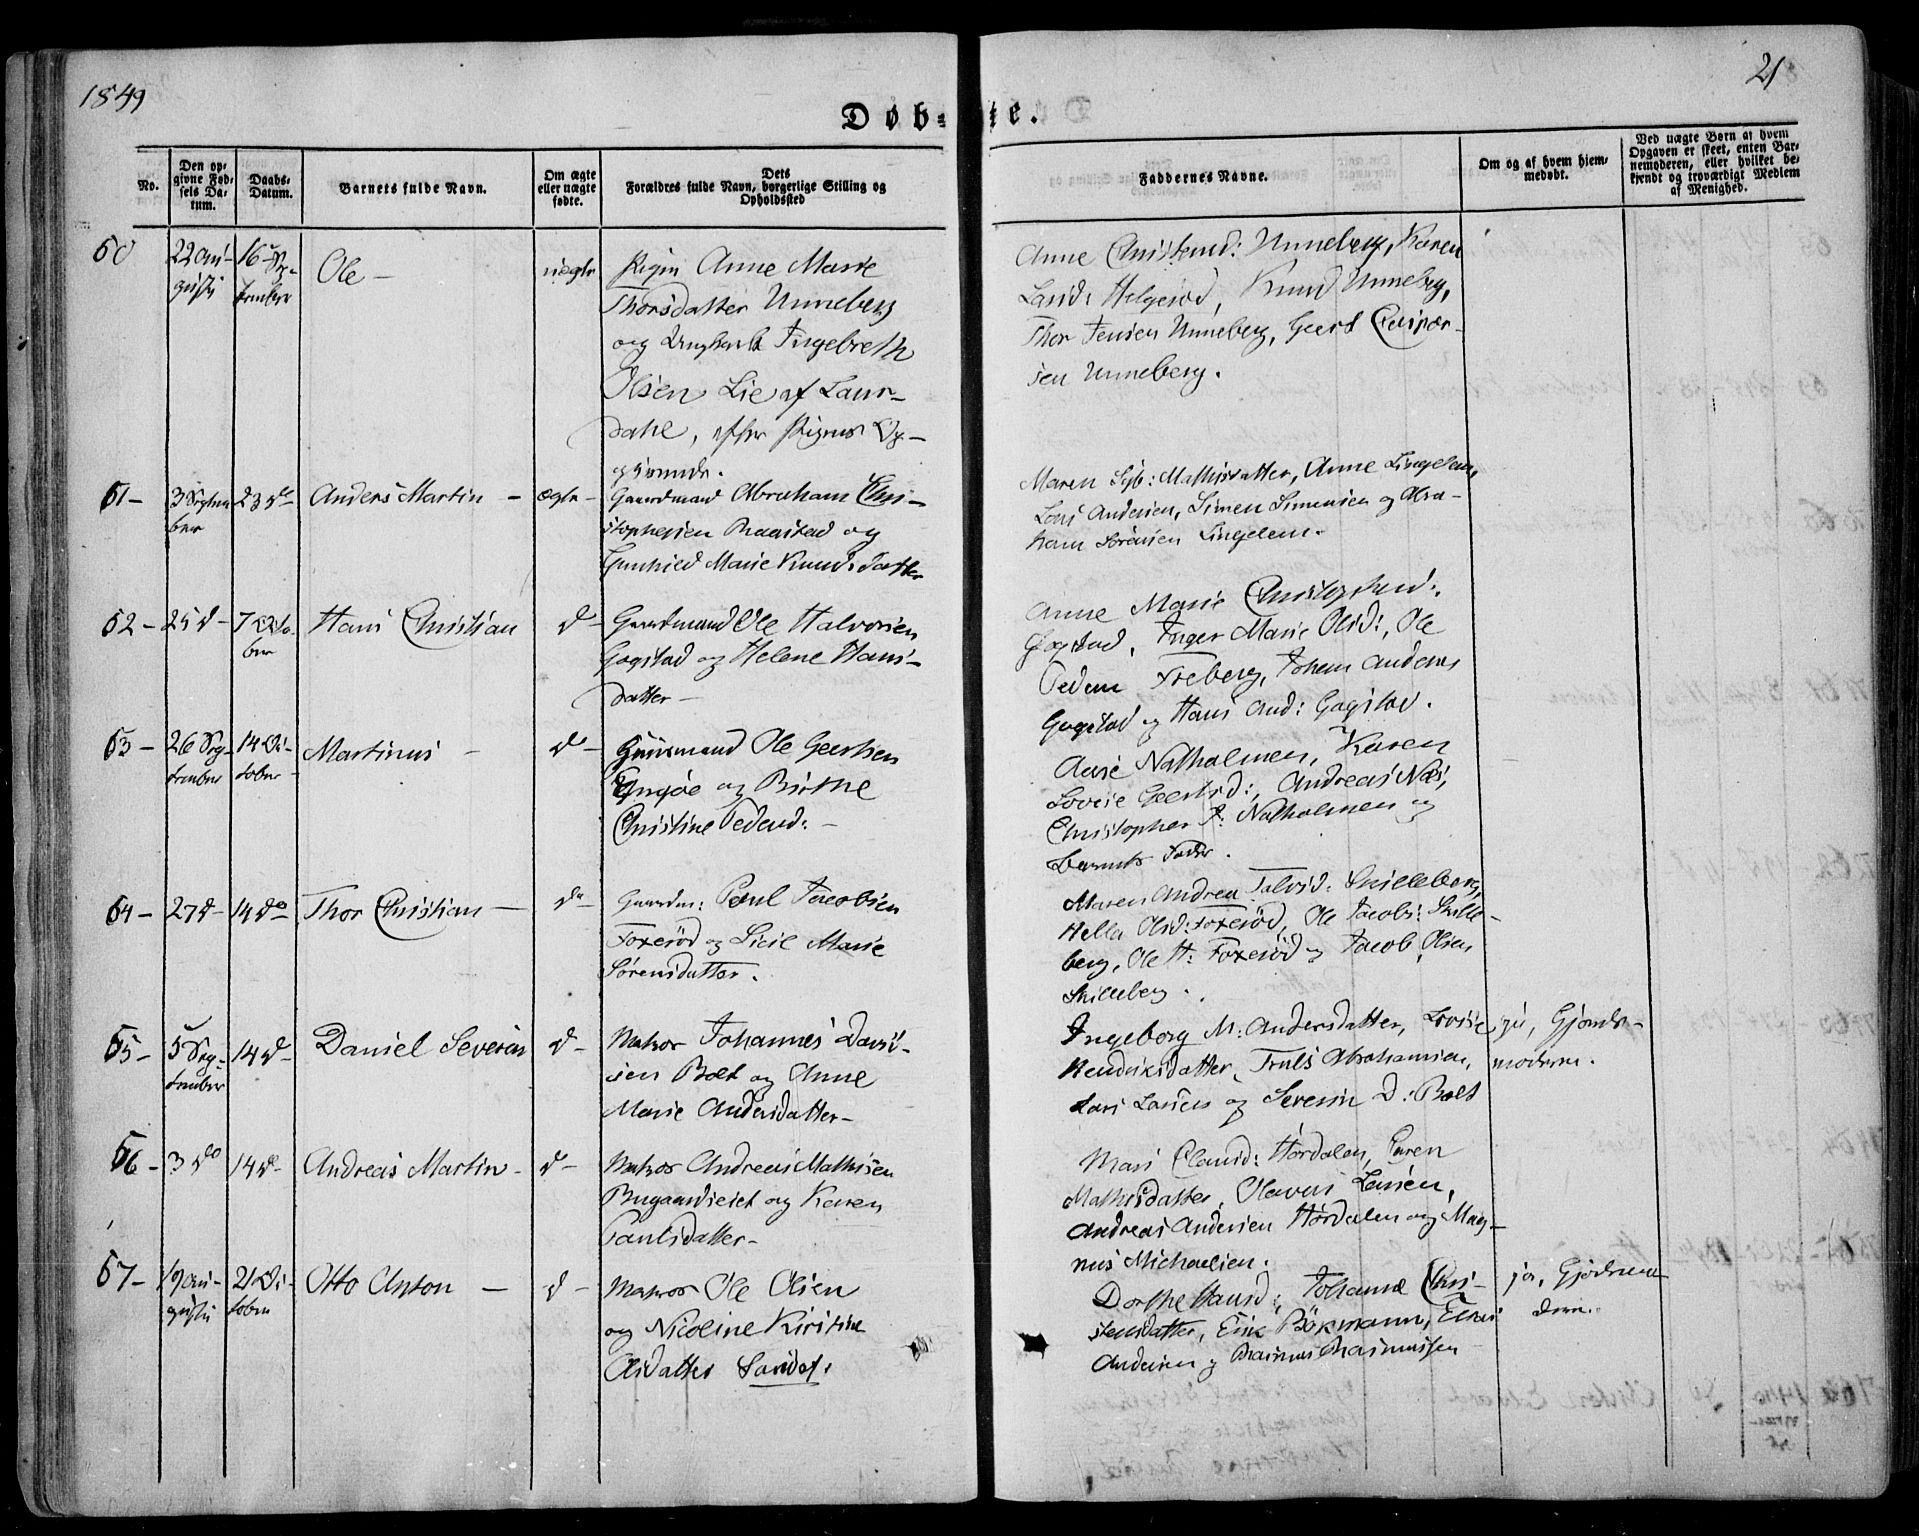 1849
21
Døb=
te.
No.
Den op-
givne Fød-
sels Da-
tum.
Daabs-
Datum.
Barnets fulde Navn.
Om ægte
eller uægte
fødte.
Dets
Forældres fulde Navn, borgerlige Stilling og
Opholdssted
Faddernes Navne.
Om og af hvem hjem-
medøbt.
Ved uægte Børn af hvem
Opgaven er skeet, enten Bar-
nemoderen, eller hvilket be-
kjendt og troværdigt Medlem
af Menighed.
50
22 Au-
gusti
16 Sep-
tember
Ole –
uægte
Pigen Anne Marie
Thorsdatter Unneberg
og Ungkarl Ingebreth
Olsen Lie af Laur-
dahl, efter Pigens Op-
givende.
Anne Christensd: Unneberg, Karen
Larsd: Helgerød, Knud Unneberg,
Thor Jensen Unneberg, Geert Casper-
sen Unneberg.
51 –
3 Septem
ber
23 do
Anders Martin –
ægte –
Gaardmand Abraham Chri-
stophersen Raastad og
Gunhild Marie Knudsdatter
Maren Sib: Mathisdatter, Anne Lingelem,
Lars Andersen, Simen Simensen og Abra-
ham Sørensen Lingelem.
52 –
25 d –
7 Octo-
ber
Hans Christian
d –
Gaardmand Ole Halvorsen
Gogstad og Helene Hans-
datter –
Anne Marie Christophersd:
Gogstad, Inger Marie Olsd:, Ole
Peders Freberg, Johan Anders
Gogstad og Hans And: Gogstad.
53 –
26 Sep-
tember
14 Oc-
tober –
Martinus –
d –
Huusmand Ole Geertsen
Engøe og Birthe
Christine Pedersd: –
Aase Natholmen, Karen
Lovise Geertsd:, Andreas Næs,
Christopher P: Natholmen og
Barnets Fader.
54 –
27 d –
14 do
Thor Christian –
do
Gaardm: Paul Jacobsen
Foxerød og Sicil Marie
Sørensdatter.
Maren Andrea Talvsd: Skilleberg,
Hella Olsd: Foxerød, Ole Jacobs: Skille-
berg, Ole H: Foxerød og Jacob Olsen
Skilleberg.
55 –
5 Sep-
tember
14 d –
Daniel Severin
d –
Matros Johannes David-
sen Bolt og Anne
Marie Andersdatter –
Ingeborg M: Andersdatter, Lovise
Hendriksdatter, Truls Abrahamsen,
Lars Larsen og Severin D: Bolt
ja, Gjords-
moderen.
56 –
3 do
14 do –
Andreas Martin –
d –
Matros Andreas Mathisen
Bugaardseiet og Karen
Paulsdatter –
Mari Clausd: Hørdalen, Karen
Mathisdatter, Olavus Larsen,
Andreas Andersen Hørdalen og Mag-
nus Michaelsen.
57 –
19 Au-
gusti
21 Oc-
tober
Otto Anton –
d –
Matros Ole Olsen
og Nicoline Kirstine
Olsdatter Sandef:
Dorthe Hansd:, Johanne Chri-
stensdatter, Erik Bökmann, Elias
Andersen og Rasmus Rasmussen
ja, Gjordemo-
deren.